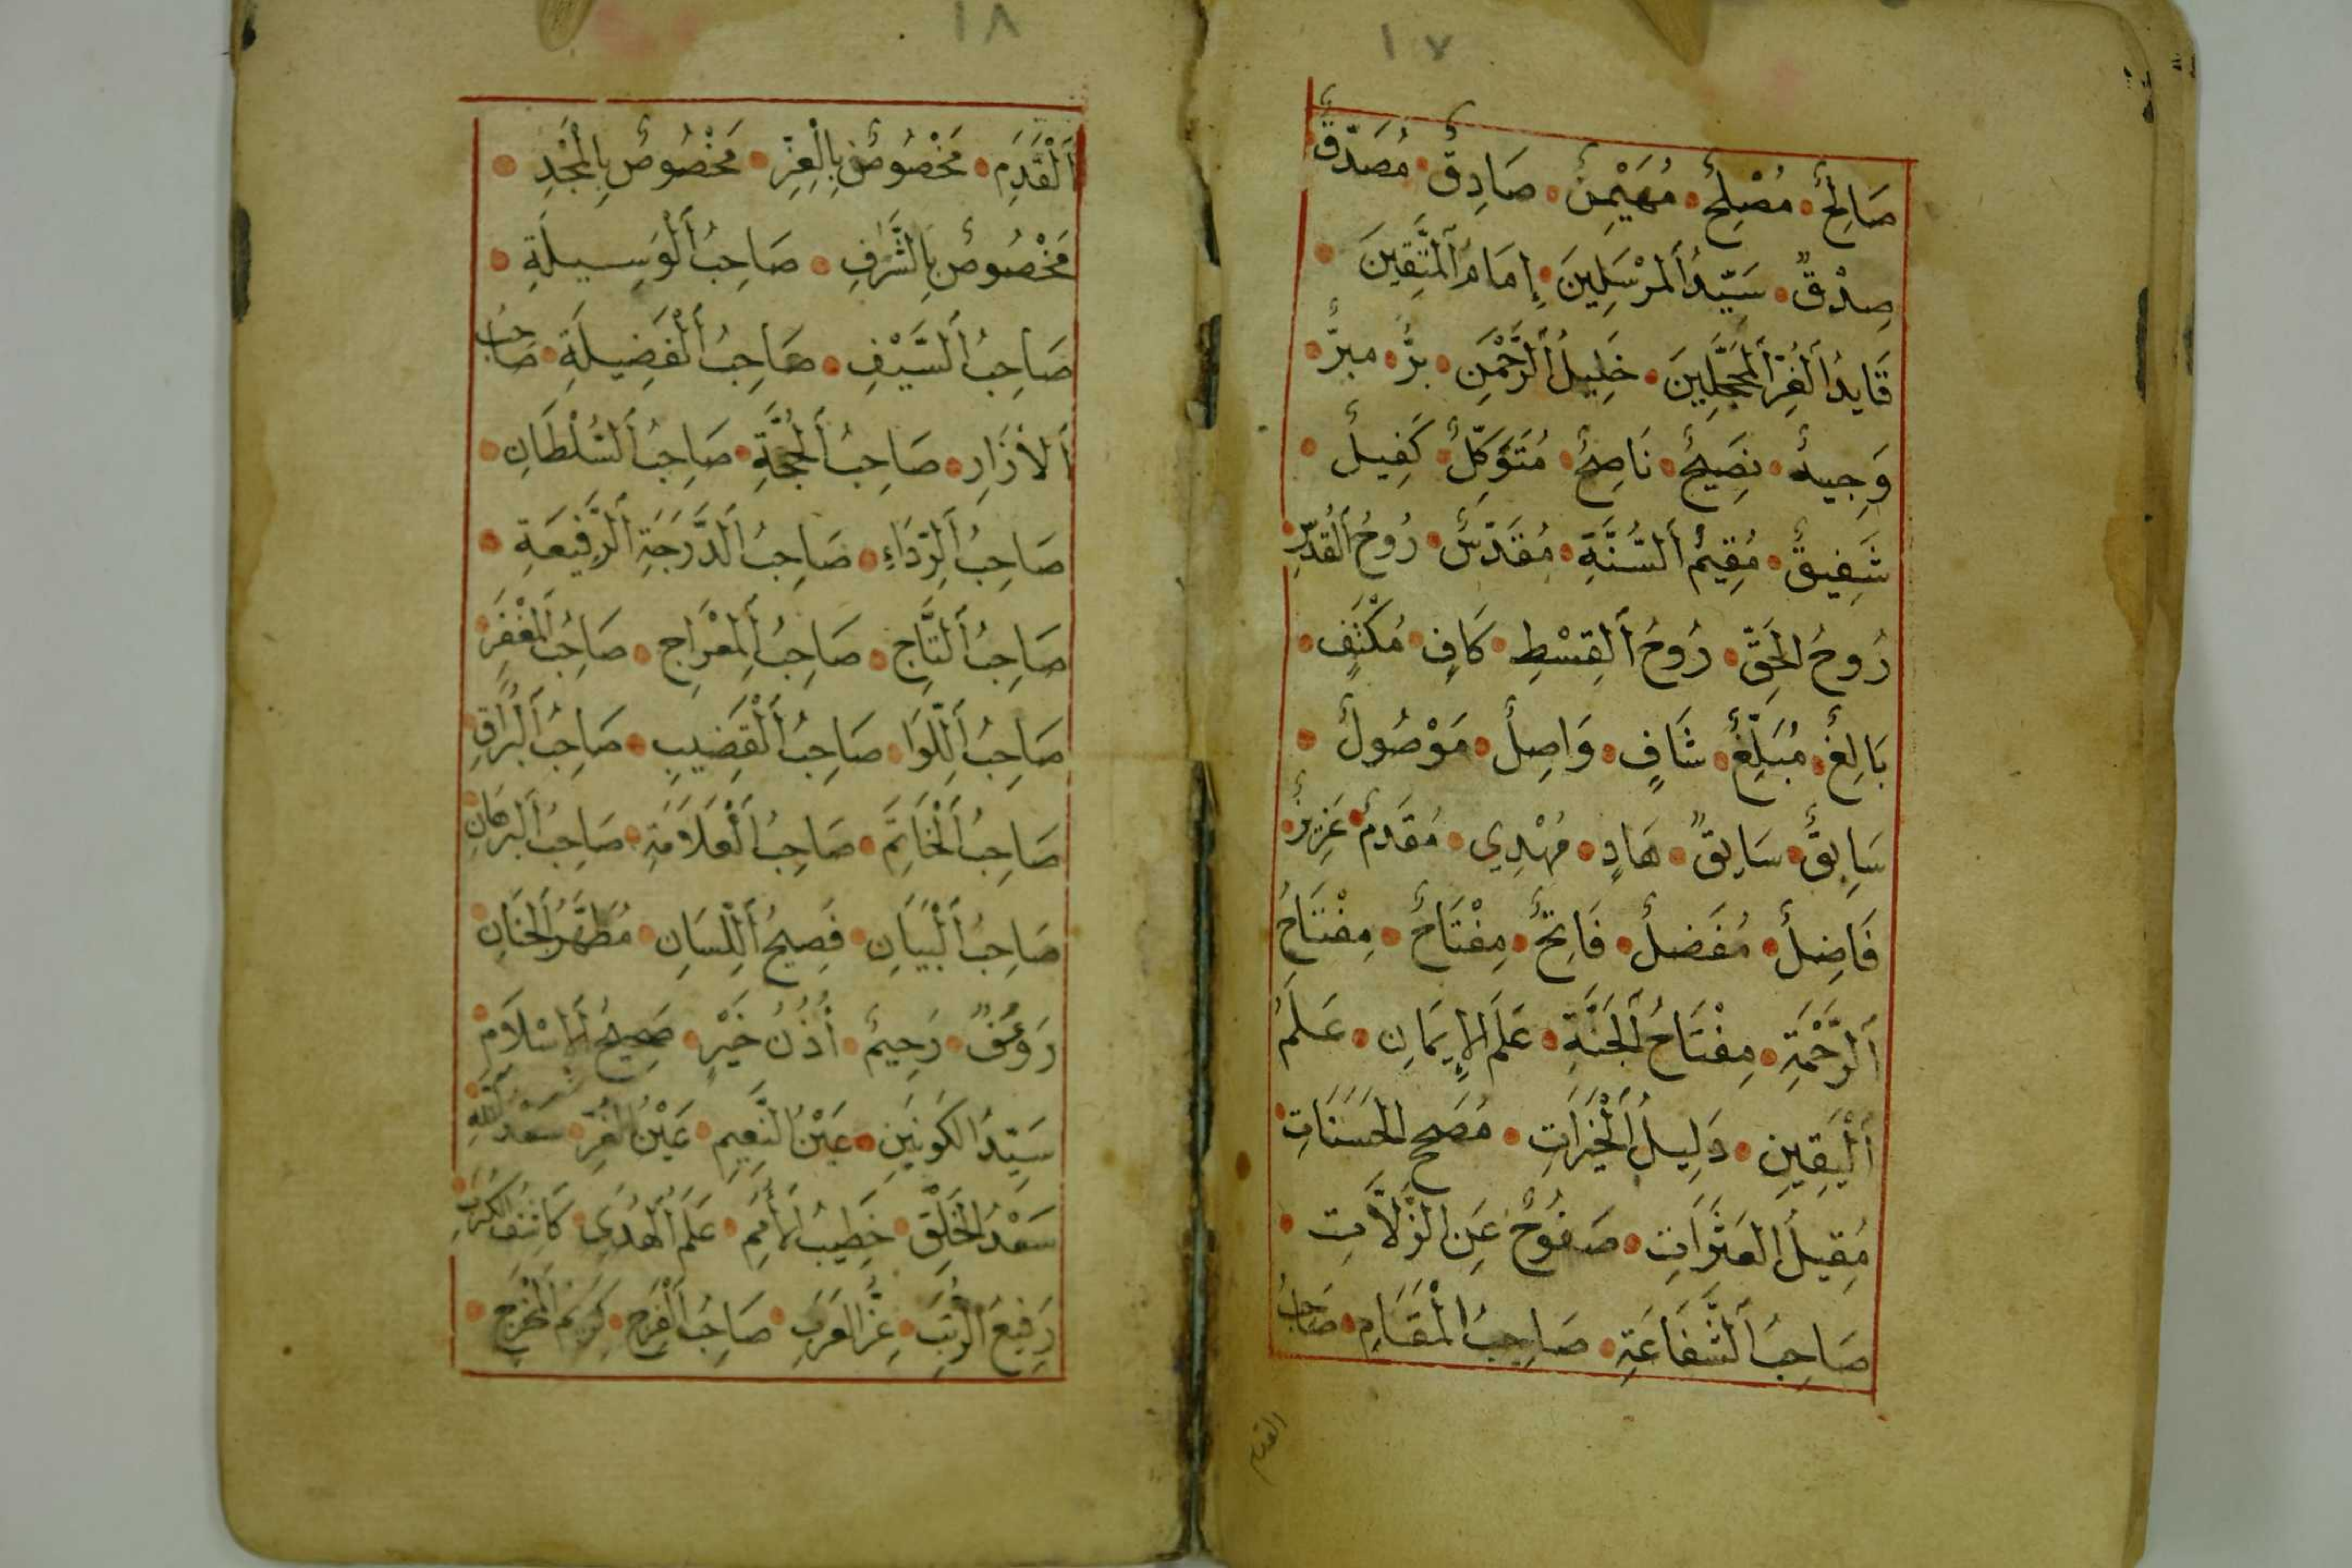 ١٧
صَالِحٌ مُصْلِحٌ مُهَيْمِنٌ صَادِقٌ مُصَدَّقٌ
صِدْقٌ سَيِّدُ اَلْمُرْسَلِينَ إِمَامُ اَلْمُتَّقِينَ
قَايِدُ اَلْغُرِّ اَلْمُحَجَّلِينَ خَلِيلُ اَلرَّحْمٰنِ بَرٌّ مبرٌّ
وَجِيهٌ نَصِيحٌ نَاصِحٌ مُتَوَكِّلٌ كَفِيلٌ
شَفِيقٌ مُقِيمُ اَلسُّنَّةِ مُقَدَّسٌ رُوحُ اَلْقُدُسِ
رُوحُ الْحَقِّ رُوحُ اَلْقِسْطِ كَافٍ مُكْتَفٍ
بَالِغٌ مُبَلِّغٌ شَافٍ وَاصِلٌ مَوْصُولٌ
سَابِقٌ سَايِقٌ هَادٍ مُهْدِي مُقَدَّمٌ عَزِيزٌ
فَاضِلٌ مُفَضَّلٌ فَاتِحٌ مِفْتَاحٌ مِفْتَاحُ
اَلرَّحْمَةِ مِفْتَاحُ اَلْجَنَّةِ عَلَمُ الْإِيمَانِ عَلَمُ
اَلْيَقِينِ دَلِيلُ اَلْخَيْرَاتِ مُصَحِّحُ الْحَسَنَاتِ
مُقِيلُ الْعَثَرَاتِ صَفُوحٌ عَنِ الزَّلَّاتِ
صَاحِبُ اَلشَّفَاعَةِ صَاحِبُ الْمَقَامِ صَاحِبُ
القدم
١٨
اَلْقَدَمِ مَخْصُوصٌ بِالْعِزِّ مَخْصُوصٌ بِالْمَجْدِ
مَخْصُوصٌ بِالشَّرَفِ صَاحِبُ اَلْوَسِيلَةِ
صَاحِبُ اَلسَّيْفِ صَاحِبُ اَلْفَضِيلَةِ صَاحِبُ
اَلْأزَارِ صَاحِبُ اَلْحُجَّةِ صَاحِبُ اَلسُّلْطَانِ
صَاحِبُ اَلرِّدَاءِ صَاحِبُ اَلدَّرَجَةِ اَلرَّفِيعَةِ
صَاحِبُ اَلتَّاجِ صَاحِبُ اَلْمِعْرَاجِ صَاحِبُ اَلْمِغْفَرِ
صَاحِبُ اَللِّوَا صَاحِبُ اَلْقَضِيبِ صَاحِبُ اَلْبُرَاقِ
صَاحِبُ اَلْخَاتَمِ صَاحِبُ اَلْعَلَامَةِ صَاحِبُ اَلْبُرْهَانِ
صَاحِبُ اَلْبَيَانِ فَصِيحُ اَللِّسَانِ مُطَهَّرُ اَلْجَنَانِ
رَؤُفٌ رَحِيمٌ أُذُنُ خَيْرٍ صَحِيحُ اَلْإِسْلَامِ
سَيِّدُ الْكَوْنَيْنِ عَيْنُ اَلنَّعِيمِ عَيْنُ الْغُرِّ سَعْدُ اللّٰهِ
سَعْدُ الْخَلْقِ خَطِيبُ الْأُمَمِ عَلَمُ اَلْهُدَى كَاشِفُ الْكُرَبِ
رَفِيعُ الرُّتَبِ عِزُّ الْعَرَبِ صَاحِبُ اَلْفَرَجِ كَرِيمُ اَلْمَخْرَجِ